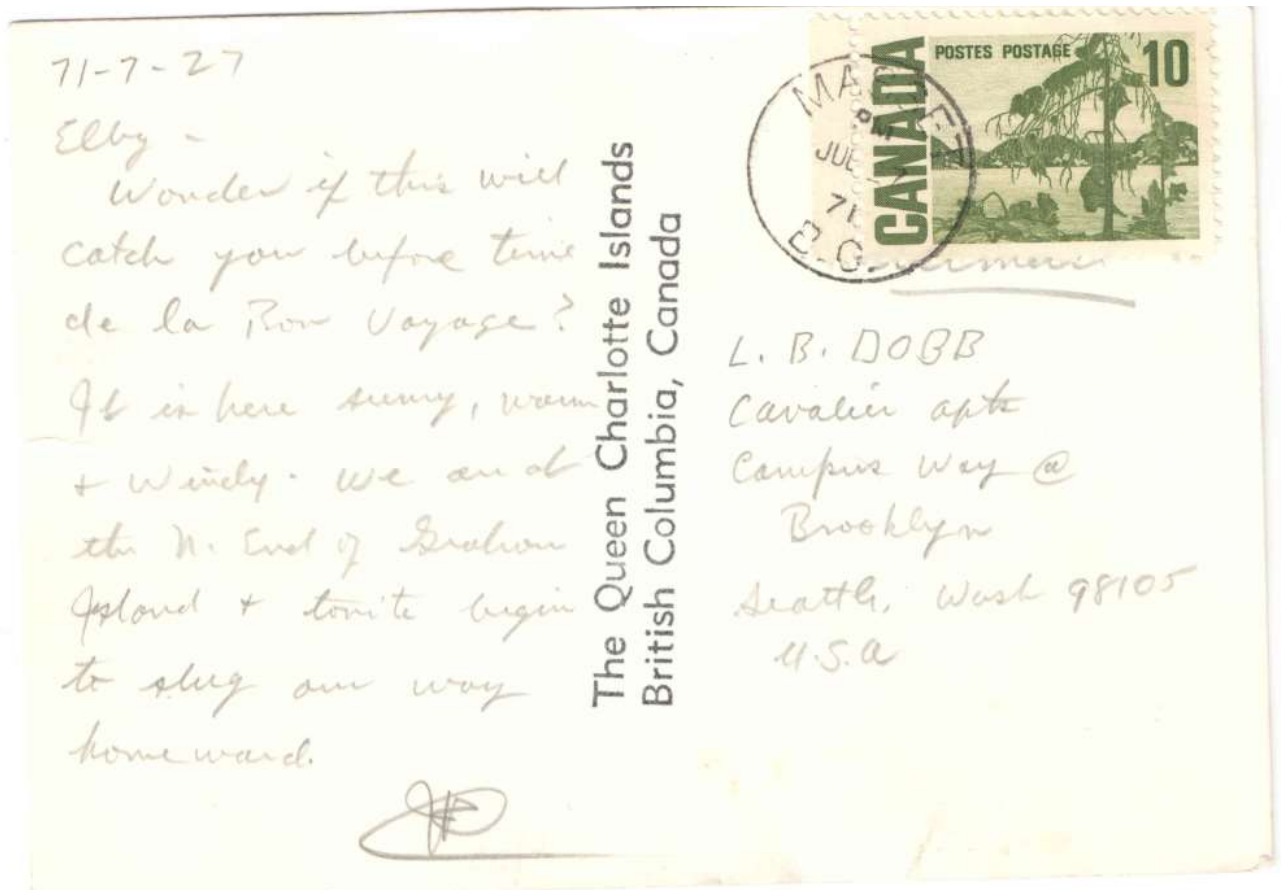 71-7-27
Elby -
Wonder if this will
catch you before time
de la Bon Voyage?
It is here sunny, warm
& windy. We are at
the N. End of Graham
Island & tonite begin
to slug our way
homeward.
The Queen Charlotte Islands
British Columbia, Canada
CANADA
POSTES POSTAGE
10
PM
JUL
71
B.C.
L. B. DOBB
Cavalier apts
Campus Way @
Brooklyn
Seattle, Wash 98105
U.S.A